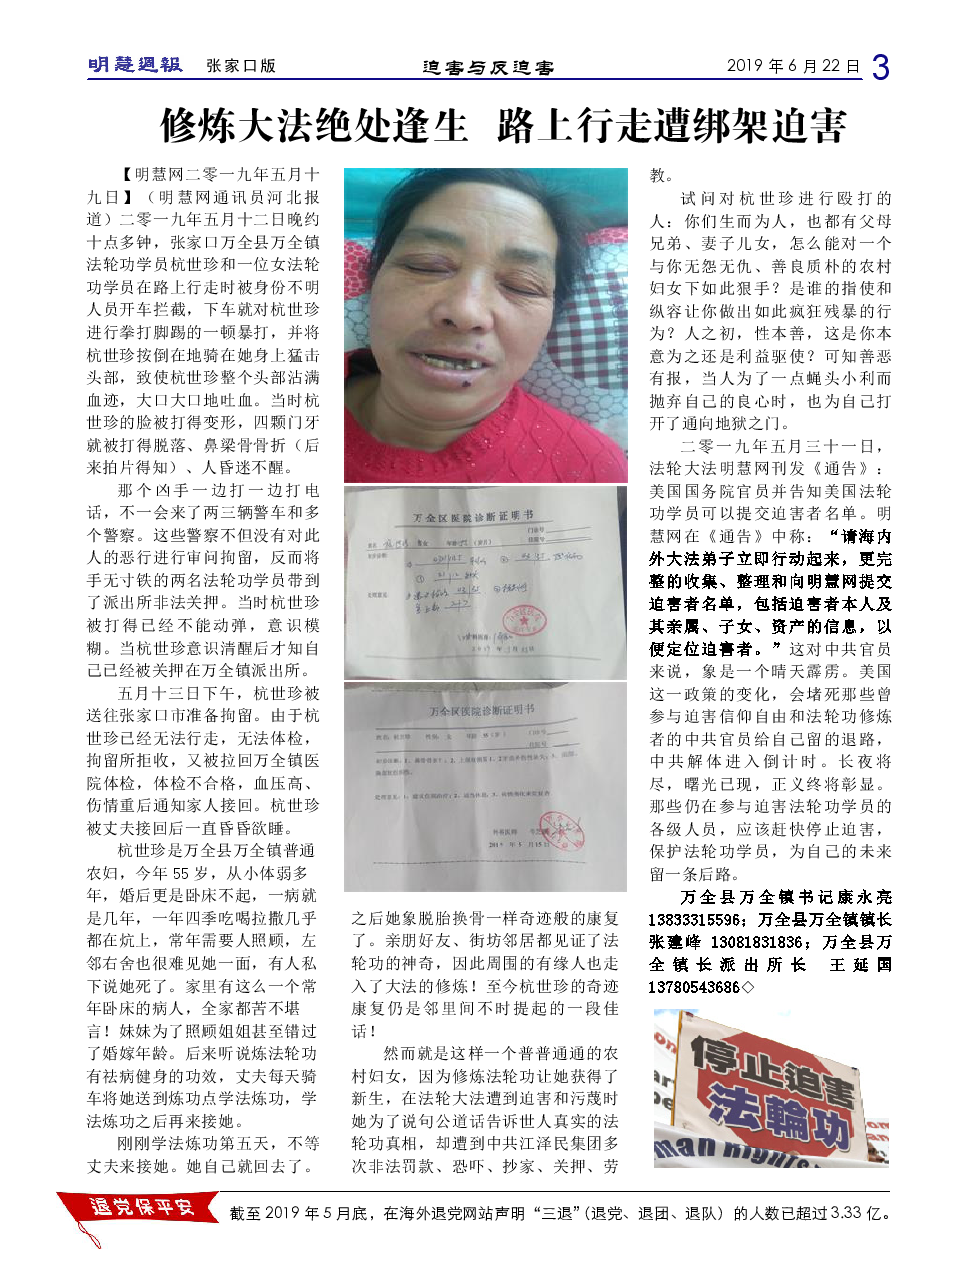 明慧週報 张家口版 迫害与反迫害 2019 年 6 月 22 日 3
修炼大法绝处逢生 路上行走遭绑架迫害
【明慧网二零一九年五月十
九日】（明慧网通讯员河北报
道）二零一九年五月十二日晚约
十点多钟，张家口万全县万全镇
法轮功学员杭世珍和一位女法轮
功学员在路上行走时被身份不明
人员开车拦截，下车就对杭世珍
进行拳打脚踢的一顿暴打，并将
杭世珍按倒在地骑在她身上猛击
头部，致使杭世珍整个头部沾满
血迹，大口大口地吐血。当时杭
世珍的脸被打得变形，四颗门牙
就被打得脱落、鼻梁骨骨折（后
来拍片得知）、人昏迷不醒。
那个凶手一边打一边打电
话，不一会来了两三辆警车和多
个警察。这些警察不但没有对此
人的恶行进行审问拘留，反而将
手无寸铁的两名法轮功学员带到
了派出所非法关押。当时杭世珍
被打得已经不能动弹，意识模
糊。当杭世珍意识清醒后才知自
己已经被关押在万全镇派出所。
五月十三日下午，杭世珍被
送往张家口市准备拘留。由于杭
世珍已经无法行走，无法体检，
拘留所拒收，又被拉回万全镇医
院体检，体检不合格，血压高、
伤情重后通知家人接回。杭世珍
被丈夫接回后一直昏昏欲睡。
杭世珍是万全县万全镇普通
农妇，今年 55 岁，从小体弱多
年，婚后更是卧床不起，一病就
是几年，一年四季吃喝拉撒几乎
都在炕上，常年需要人照顾，左
邻右舍也很难见她一面，有人私
下说她死了。家里有这么一个常
年卧床的病人，全家都苦不堪
言！妹妹为了照顾姐姐甚至错过
了婚嫁年龄。后来听说炼法轮功
有祛病健身的功效，丈夫每天骑
车将她送到炼功点学法炼功，学
法炼功之后再来接她。
刚刚学法炼功第五天，不等
丈夫来接她。她自己就回去了。
万全区医院诊断证明书
万全区医院诊断证明书
之后她象脱胎换骨一样奇迹般的康复
了。亲朋好友、街坊邻居都见证了法
轮功的神奇，因此周围的有缘人也走
入了大法的修炼！至今杭世珍的奇迹
康复仍是邻里间不时提起的一段佳
话！
然而就是这样一个普普通通的农
村妇女，因为修炼法轮功让她获得了
新生，在法轮大法遭到迫害和污蔑时
她为了说句公道话告诉世人真实的法
轮功真相，却遭到中共江泽民集团多
次非法罚款、恐吓、抄家、关押、劳
教。
试问对杭世珍进行殴打的
人：你们生而为人，也都有父母
兄弟、妻子儿女，怎么能对一个
与你无怨无仇、善良质朴的农村
妇女下如此狠手？是谁的指使和
纵容让你做出如此疯狂残暴的行
为？人之初，性本善，这是你本
意为之还是利益驱使？可知善恶
有报，当人为了一点蝇头小利而
抛弃自己的良心时，也为自己打
开了通向地狱之门。
二零一九年五月三十一日，
法轮大法明慧网刊发《通告》：
美国国务院官员并告知美国法轮
功学员可以提交迫害者名单。明
慧网在《通告》中称：“请海内
外大法弟子立即行动起来，更完
整的收集、整理和向明慧网提交
迫害者名单，包括迫害者本人及
其亲属、子女、资产的信息，以
便定位迫害者。”这对中共官员
来说，象是一个晴天霹雳。美国
这一政策的变化，会堵死那些曾
参与迫害信仰自由和法轮功修炼
者的中共官员给自己留的退路，
中共解体进入倒计时。长夜将
尽，曙光已现，正义终将彰显。
那些仍在参与迫害法轮功学员的
各级人员，应该赶快停止迫害，
保护法轮功学员，为自己的未来
留一条后路。
万全县万全镇书记康永亮
13833315596；万全县万全镇镇长
张建峰 13081831836；万全县万
全镇长派出所长 王延国
13780543686◇
停止迫害
法輪功
man Rights
退党保平安
截至 2019 年 5 月底，在海外退党网站声明“三退”（退党、退团、退队）的人数已超过 3.33 亿。